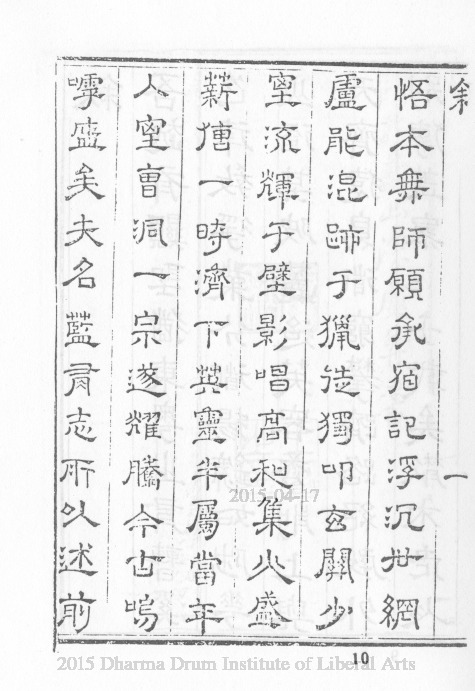 一
悟本無師願承宿記浮沉世網
盧能混跡于獵徒獨叩玄關少
室流輝于壁影唱高和集火盛
薪傳一時濟下英靈半屬當年
入室曹洞一宗遂耀騰今古嗚
嘑盛矣夫名藍有志所以述前
10
2015-04-17
2015 Dharma Drum Institute of Liberal Arts